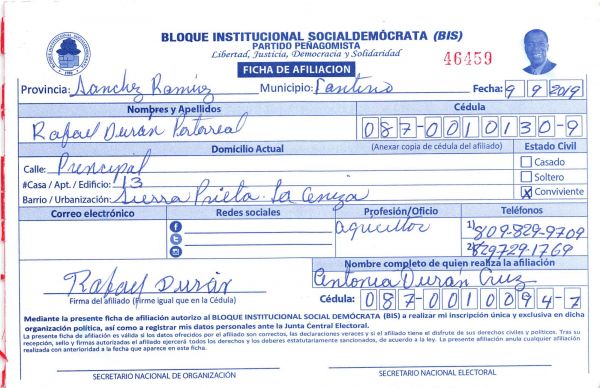 BLOQUE INSTITUCIONAL SOCIALDEMÓCRATA (BIS)
PARTIDO PEÑAGOMISTA
Libertad, Justicia, Democracia y Solidaridad
46459
FICHA DE AFILIACION
Provincia: Sanchez Ramirez Municipio: Fantino Fecha: 9 9 2019
Nombres y Apellidos Cédula
Rafael Durán Portorreal 087-0010130-9
Domicilio Actual (Anexar copia de cédula del afiliado) Estado Civil
Calle: Principal Casado
#Casa / Apt. / Edificio: 13 Soltero
Barrio / Urbanización: Sierra Prieta. La Ceniza X Conviviente
Correo electrónico Redes sociales Profesión/Oficio Teléfonos
agricultor 1) 809-829-9709
2) 829-729-1769
Nombre completo de quien realiza la afiliación
Rafael Durán Antonia Durán Cruz
Firma del afiliado (Firme igual que en la Cédula) Cédula: 087-0010094-7
Mediante la presente ficha de afiliación autorizo al BLOQUE INSTITUCIONAL SOCIAL DEMÓCRATA (BIS) a realizar mi inscripción única y exclusiva en dicha
organización política, así como a registrar mis datos personales ante la Junta Central Electoral.
La presente ficha de afiliación es válida si los datos ofrecidos por el afiliado son correctos, las declaraciones veraces y si el afiliado tiene el disfrute de sus derechos civiles y políticos. Tras su
recepción, sello y firmas autorizadas el afiliado ejercerá todos los derechos y los deberes estatutariamente sancionados, de acuerdo a la ley. La presente afiliación anula cualquier afiliación
realizada con anterioridad a la fecha que aparece en esta ficha.
SECRETARIO NACIONAL DE ORGANIZACIÓN SECRETARIO NACIONAL ELECTORAL